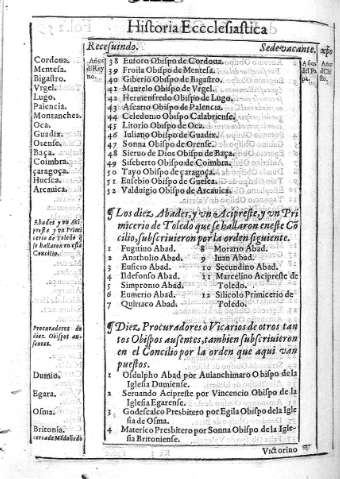 Historia Eccclesiastica
Recesuindo. Sedevacante.
Cordoua. 38 Eutoro Obispo de Cordoua.
Mentesa. 39 Froila Obispo de Mentesa.
Bigastro. 40 Giberio Obispo de Bigastro.
Vrgel. 41 Maurelo Obispo de Vrgel.
Lugo. 42 Hermenfredo Obispo de Lugo.
Palencia. 43 Ascario Obispo de Palencia.
Montanches. 44 Celedonio Obispo Calabriense.
Oca. 45 Litorio Obispo de Oca.
Guadix. 46 Iulamo Obispo de Guadix.
Orense. 47 Sonna Obispo de Orense.
Baça. 48 Sieruo de Dios Obispo de Baça.
Coimbra. 49 Siseberto Obispo de Coimbra.
çaragoça. 50 Tayo Obispo de çaragoça.
Huesca. 51 Eusebio Obispo de Guesca.
Arcauica. 52 Valduigio Obispo de Arcauica.
Abades y vn Aci
preste y vn Pri
micerio de Toledo q̃
se hallaron en este
Concilio.
¶ Los diez Abades, y vn Acipreste, y vn Pri
micerio de Toledo que se hallaron en este Cõ
cilio, subscriuieron por la orden siguiente.
1 Fugitino Abad. 8 Morario Abad.
2 Anatholio Abad. 9 Iuan Abad.
3 Eusicio Abad. 10 Secundino Abad.
4 Ildefonso Abad. 11 Marcelino Acipreste de
5 Simpronio Abad. Toledo.
6 Eumerio Abad. 12 Silicolo Primicerio de
7 Quiriaco Abad. Toledo.
Procuradores de
diez Obispos au-
sentes.
¶ Diez Procuradores o Vicarios de otros tan
tos Obispos ausentes, tambien subscriuieron
en el Concilio por la orden que aqui van
puestos.
Dumio. 1 Osdulpho Abad por Aulanchimaro Obispo de la
Iglesia Dumiense.
Egara. 2 Seruando Acipreste por Vincencio Obispo de la
Iglesia Egarense.
Osma. 3 Godescalco Presbitero por Egila Obispo de la Igle
sia de Osma.
Britonia. 4 Materico Presbitero por Sonna Obispo de la Igle-
sia Britoniense.
Victorino